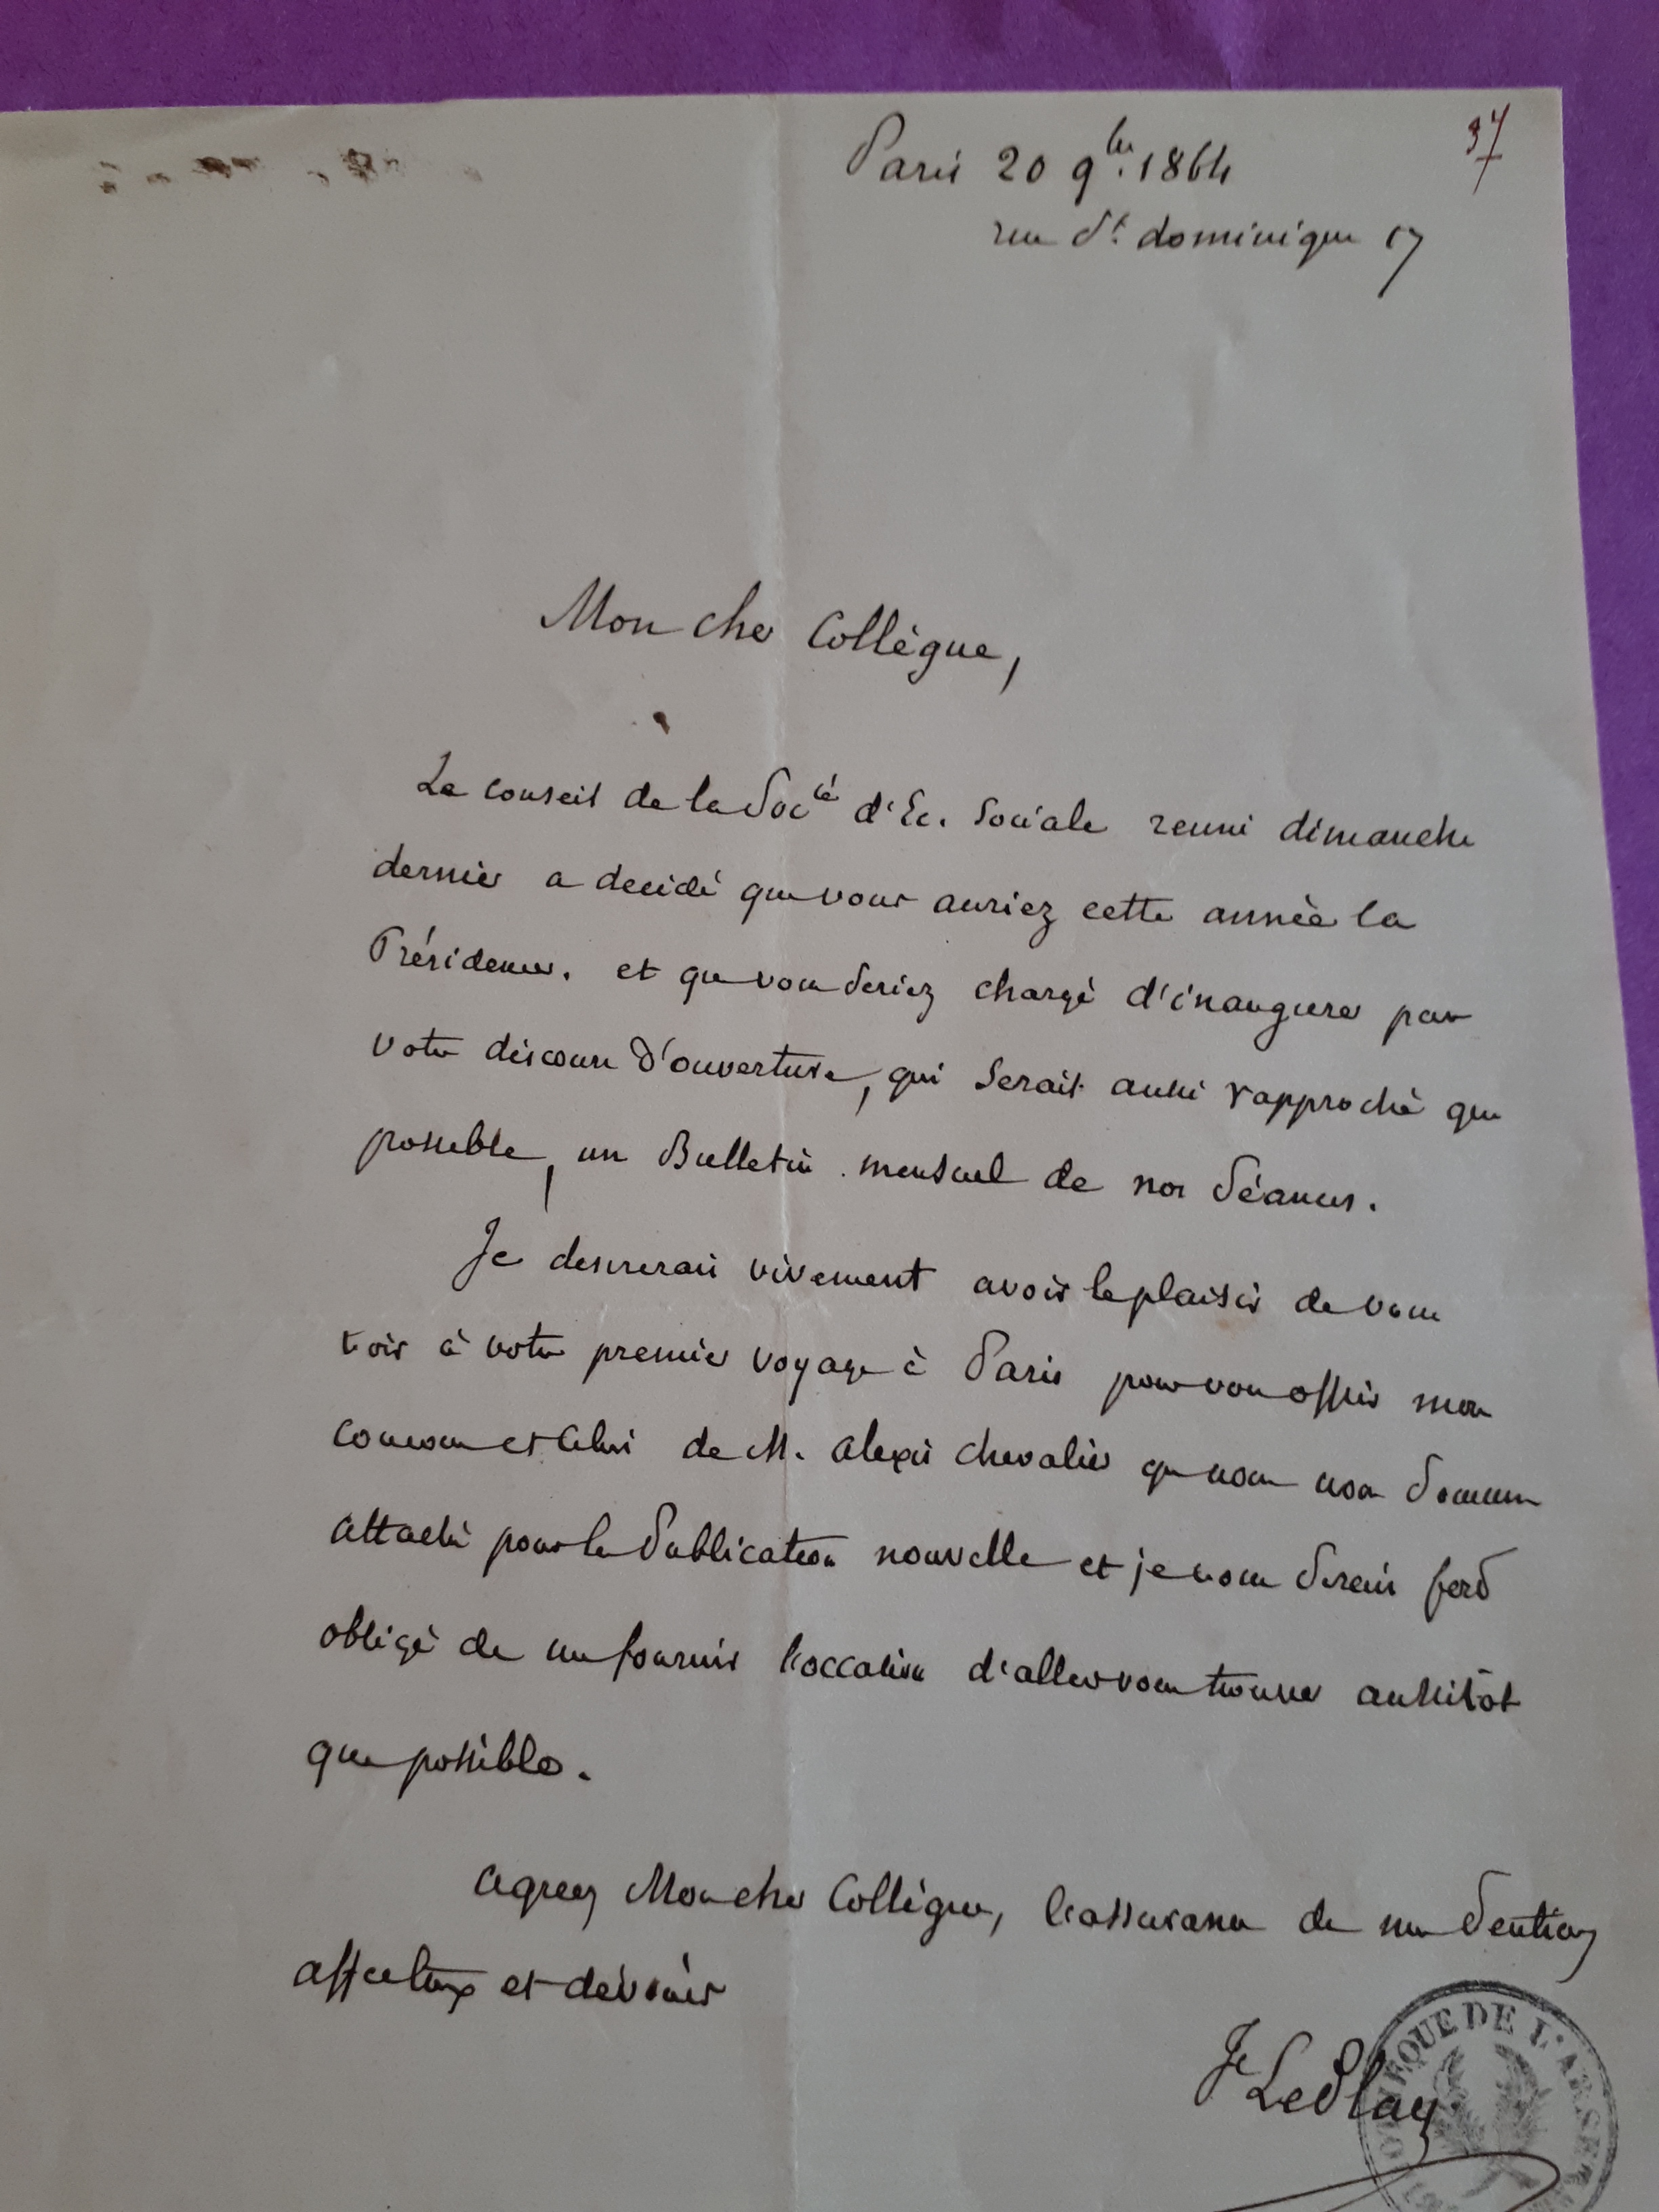 37
Paris 20 9bre 1864
rue St. dominique 17
Mon cher Collègue,
Le conseil de la Socté d'Ec. Sociale reuni dimanche
dernier a decidé que vous auriez cette année la
Présidence. et que vous seriez chargé d'inaugurer par
votre discours d'ouverture, qui serait aussi rapproché que
possible, un Bulletin mensuel de nos séances.
Je desirerais vivement avoir le plaisir de vous
voir à votre premier voyage à Paris pour vous offrir mon
concours et celui de M. alexis chevalier que nous nous sommes
attaché pour la publication nouvelle et je vous serais fort
obligé de me fournir l'occasion d'aller vous trouver aussitôt
que possible.
agreez Mon cher Collègue, l'assurance de mes sentimens
affectueux et dévoués
F Le Play
BIBLIOTHEQUE DE L'ARSENAL